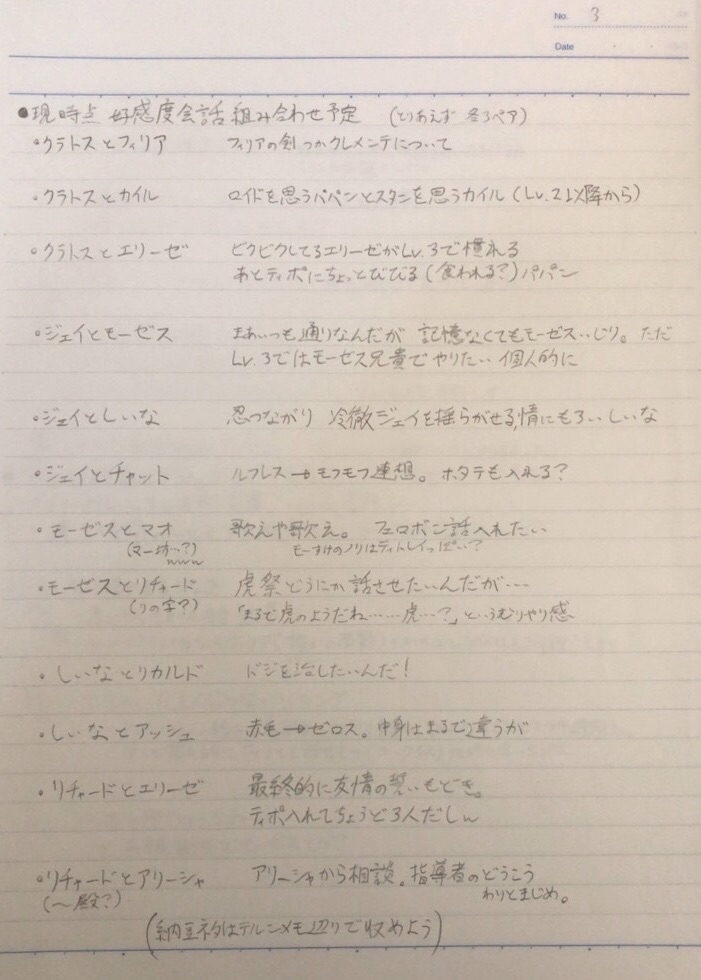 No. 3
Date
●現時点 好感度会話 組み合わせ予定 (とりあえず 各3ペア)
・クラトスとフィリア フィリアの剣つかクレメンテについて
・クラトスとカイル ロイドを思うパパンとスタンを思うカイル (Lv.2以降から)
・クラトスとエリーゼ ビクビクしてるエリーゼがLv.3で慣れる
あとティポにちょっとびびる(食われる?)パパン
・ジェイとモーゼス まあいつも通りなんだが 記憶なくてもモーゼスいじり。ただ
Lv.3ではモーゼス兄貴でやりたい 個人的に
・ジェイとしいな 忍つながり 冷徹ジェイを揺らがせる,情にもろいしいな
・ジェイとチャット ルフレス→モフモフ連想。ホタテも入れる?
・モーゼスとマオ 歌えや歌え。 フェロボン話入れたい
(マー坊…?) モーすけのノリはティトレイっぽい?
www
・モーゼスとリチャード 虎祭どうにか話させたいんだが…
(リの字?) 「まるで虎のようだね……虎…?」というむりやり感
・しいなとリカルド ドジを治したいんだ!
・しいなとアッシュ 赤毛→ゼロス。中身はまるで違うが
・リチャードとエリーゼ 最終的に友情の誓いもどき。
ティポ入れてちょうど3人だしん
・リチャードとアリーシャ アリーシャから相談。指導者のどうこう
(〜殿?) わりとまじめ。
(納豆ネタはテルンメモ辺りで収めよう)